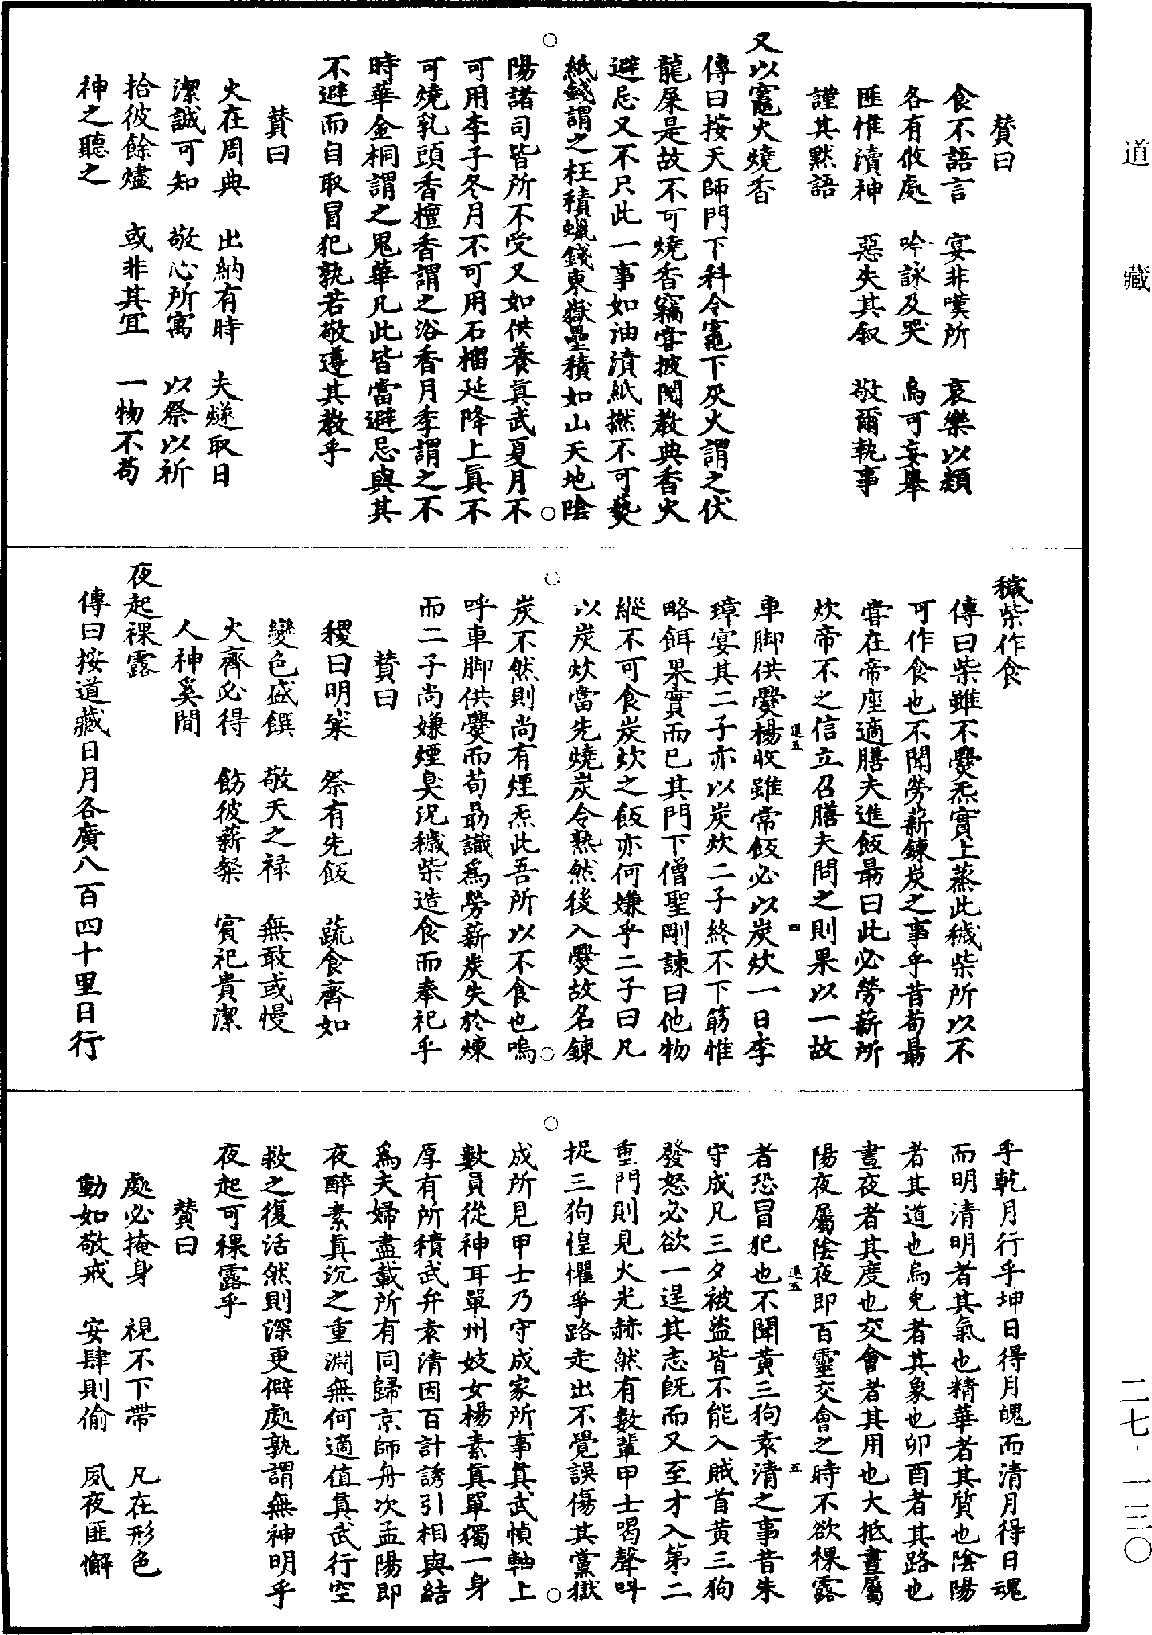 道藏
贊曰
食不語言　宴非嘆所　哀樂以類
各有攸處　吟詠及哭　烏可妄舉
匪惟瀆神　惡失其叙　敬爾執事
謹其默語
又以竈火燒香
傳曰按天師門下科令竈下灰火謂之伏
龍屎是故不可燒香竊嘗披閱教典香火
避忌又不只此一事如油漬紙撚不可爇
紙錢謂之枉積蠟錢東嶽壘積如山天地陰
陽諸司皆所不受又如供養真武夏月不
可用李子冬月不可用石榴延降上真不
可燒乳頭香檀香謂之浴香月季謂之不
時華金桐謂之鬼華凡此皆當避忌與其
不避而自取冒犯孰若敬遵其教乎
贊曰
火在周典　出納有時　夫燧取日
潔誠可知　敬心所寓　以祭以祈
拾彼餘燼　或非其宜　一物不苟
神之聽之
穢柴作食
傳曰柴雖不爨炁實上蒸此穢柴所以不
可作食也不聞勞薪鍊炭之事乎昔荀勗
嘗在帝座適膳夫進飯勗曰此必勞薪所
炊帝不之信立召膳夫問之則果以一故
車脚供爨楊收雖常飯必以炭炊一日李
璋宴其二子亦以炭炊二子終不下筯惟
略餌果實而已其門下僧聖剛諫曰他物
縱不可食炭炊之飯亦何嫌乎二子曰凡
以炭炊當先燒炭令熟然後入爨故名鍊
炭不然則尚有煙炁此吾所以不食也嗚
呼車脚供爨而荀勗識為勞薪炭失於煉
而二子尚嫌煙臭況穢柴造食而奉祀乎
贊曰
稷曰明粢　祭有先飯　蔬食齊如
變色盛饌　敬天之禄　無敢或慢
火齊必得　飭彼薪粲　賓祀貴潔
人神奚間
夜起裸露
傳曰按道藏日月各廣八百四十里日行
乎乾月行乎坤日得月魄而清月得日魂
而明清明者其氣也精華者其質也陰陽
者其道也烏兔者其象也卯酉者其路也
晝夜者其度也交會者其用也大抵晝屬
陽夜屬陰夜即百靈交會之時不欲裸露
者恐冒犯也不聞黃三狗袁清之事昔朱
守成凡三夕被盜皆不能入賊首黃三狗
發怒必欲一逞其志既而又至才入第二
重門則見火光赫然有數輩甲士喝聲叫
捉三狗惶懼爭路走出不覺誤傷其黨獄
成所見甲士乃守成家所事真武幀軸上
數員從神耳單州妓女楊素真單獨一身
厚有所積武弁袁清因百計誘引相與結
為夫婦盡載所有同歸京師舟次孟陽即
夜醉素真沉之重淵無何適值真武行空
救之復活然則深更僻處孰謂無神明乎
夜起可裸露乎
贊曰
處必掩身　視不下帶　凡在形色
動如敬戒　安肆則偷　夙夜匪懈
二七·一三〇